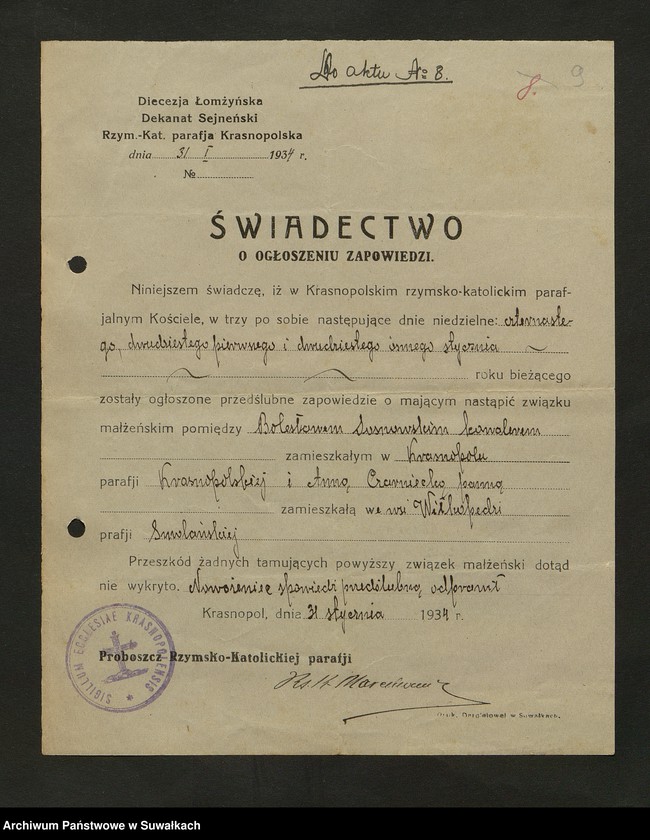 Do aktu № 8.
8.
9
Diecezja Łomżyńska
Dekanat Sejneński
Rzym.-Kat. parafja Krasnopolska
dnia 31 I 1934 r.
№
ŚWIADECTWO
O OGŁOSZENIU ZAPOWIEDZI.
Niniejszem świadczę, iż w Krasnopolskim rzymsko-katolickim paraf-
jalnym Kościele, w trzy po sobie następujące dnie niedzielne: czternaste-
go, dwudziestego pierwszego i dwudziestego ósmego stycznia
roku bieżącego
zostały ogłoszone przedślubne zapowiedzie o mającym nastąpić związku
małżeńskim pomiędzy Bolesławem Sosnowskim kawalerem
zamieszkałym w Krasnopolu
parafji Krasnopolskiej i Anną Czarniecką panną
zamieszkałą we wsi Wiłkopedzi
prafji Smolańskiej
Przeszkód żadnych tamujących powyższy związek małżeński dotąd
nie wykryto. Nowożeniec spowiedź przedślubną odprawił
Krasnopol, dnia 31 stycznia 1934 r.
SIGILLUM ECCLESIAE KRASNOPOLENSIS
Proboszcz Rzymsko-Katolickiej parafji
Ks. H.
Druk. Dergielowej w Suwałkach.
Archiwum Państwowe w Suwałkach